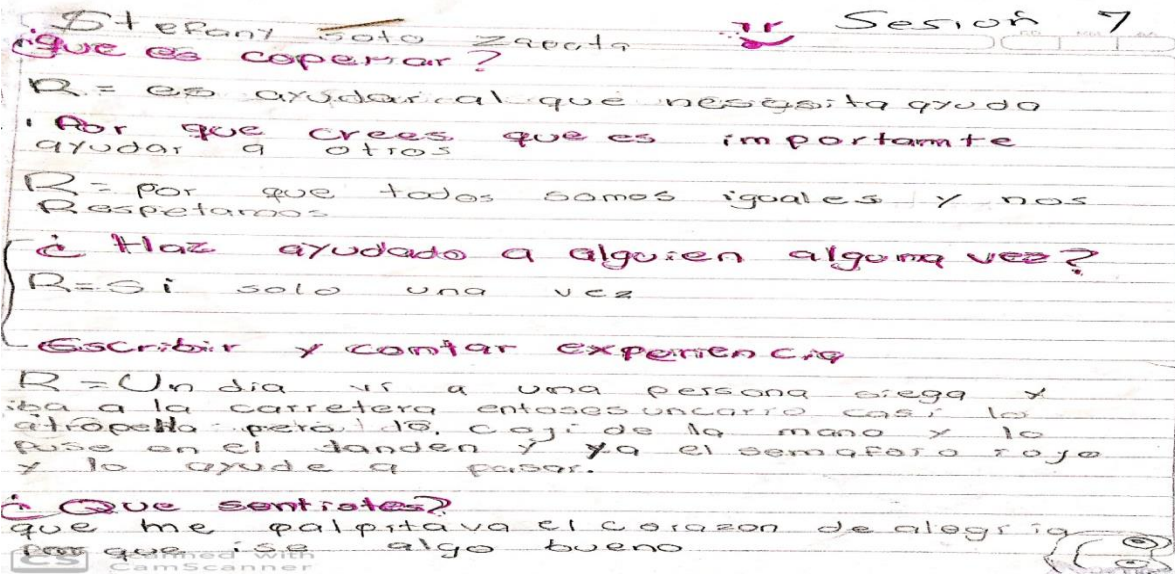 Stefany Soto Zapata Sesion 7
¿que es coperar?
R = es ayudar al que nesesita ayuda
Por que crees que es importamte
ayudar a otros
R = por que todos somos iguales y nos
Respetamos
¿ Haz ayudado a alguien alguma vez?
R = Si solo una vez
Escribir y contar experiencia
R = Un dia vi a una persona siega y
iba a la carretera entoses un carro casi lo
atropella pero lo coji de la mano y lo
puse en el tanden y ya el semaforo rojo
y lo ayude a pasar.
¿ Que sentistes?
que me palpitava el corazon de alegria
por que ise algo bueno
CS Scanned with
CamScanner